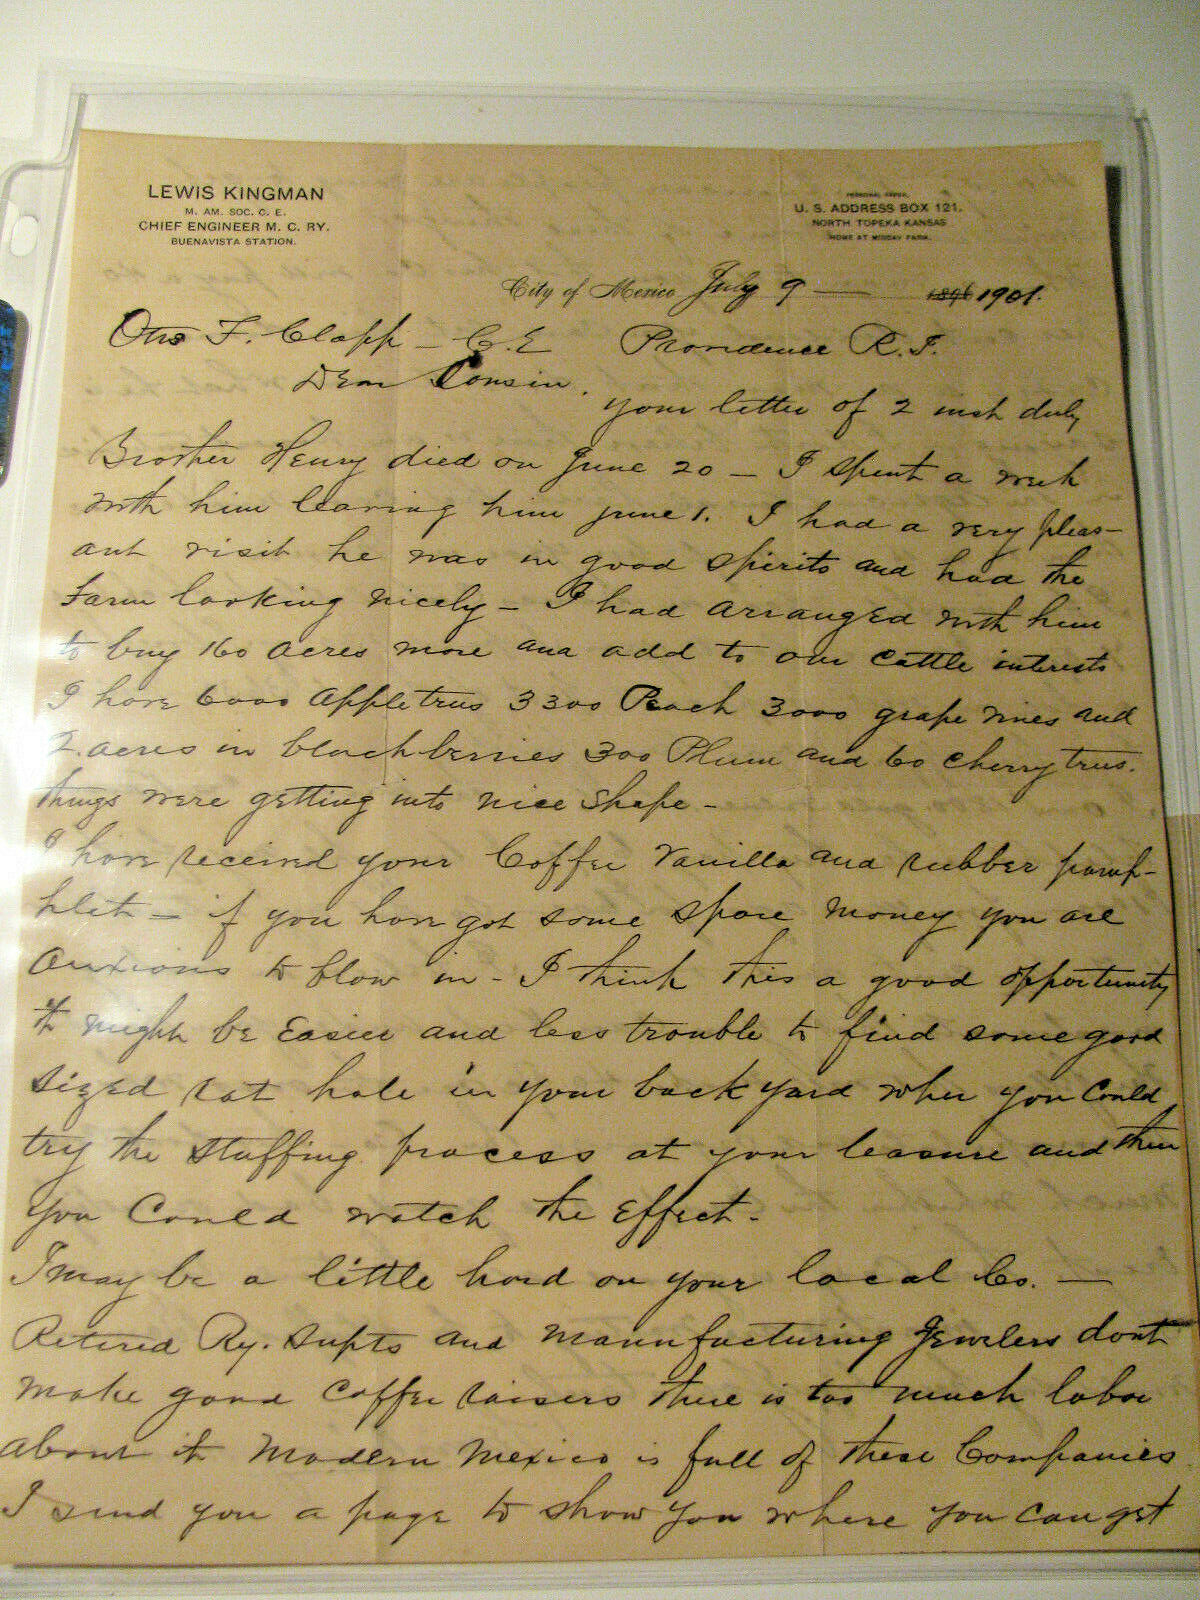 LEWIS KINGMAN
M. AM. SOC. C. E.
CHIEF ENGINEER M. C. RY.
BUENAVISTA STATION.
U. S. ADDRESS BOX 121.
NORTH TOPEKA KANSAS
City of Mexico July 9 — 1896 1901.
Otis F. Clapp — C.E Providence R.I.
Dear Cousin.
your letter of 2 inst duly
Brother Henry died on June 20 — I spent a week
with him leaving him June 1. I had a very pleas-
ant visit he was in good spirits and had the
Farm looking nicely — I had arranged with him
to buy 160 acres more and add to our cattle interests
I have 6000 Appletrees 3300 Peach 3000 grape vines and
2. acres in blackberries 300 Plum and 60 cherry trees.
things were getting into nice shape —
I have received your Coffee Vanilla and rubber pamp-
hlet — if you have got some spare money you are
anxious to blow in — I think this a good opportunity
it might be Easier and less trouble to find some good
sized rat hole in your back yard wher you could
try the stuffing process at your leasure and then
you could watch the Effect —
I may be a little hard on your local Co. —
Retired Ry. supts and manufacturing Jewelers dont
make good coffee raisers there is too much labor
about it Modern Mexico is full of these Companies
I send you a page to show you where you can get